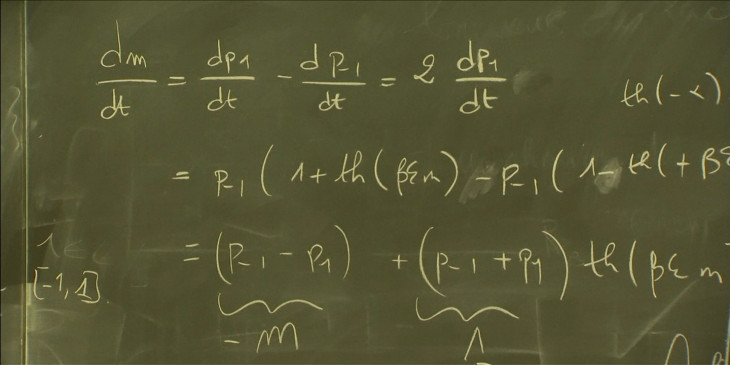 dm/dt = dp1/dt - dP-1/dt = 2 dP1/dt
th(-x)
= P-1 ( 1 + th(βεm) - P-1 ( 1 - th(+βε
= (P-1 - P1) + (P-1 + P1) th(βεm
[-1,1]
-m 1